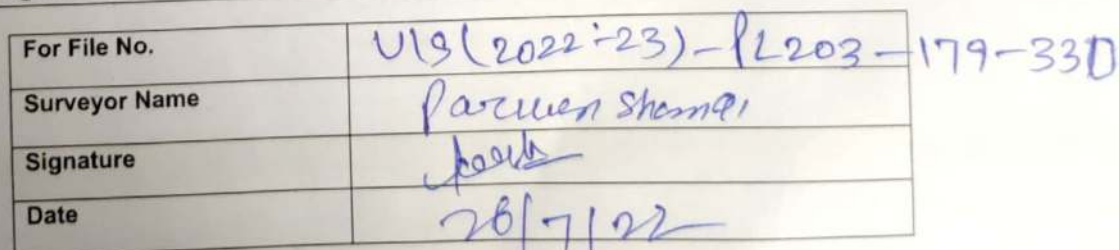 For File No. UIS(2022-23)-PL203-179-330
Surveyor Name
Signature
Date 26/7/22